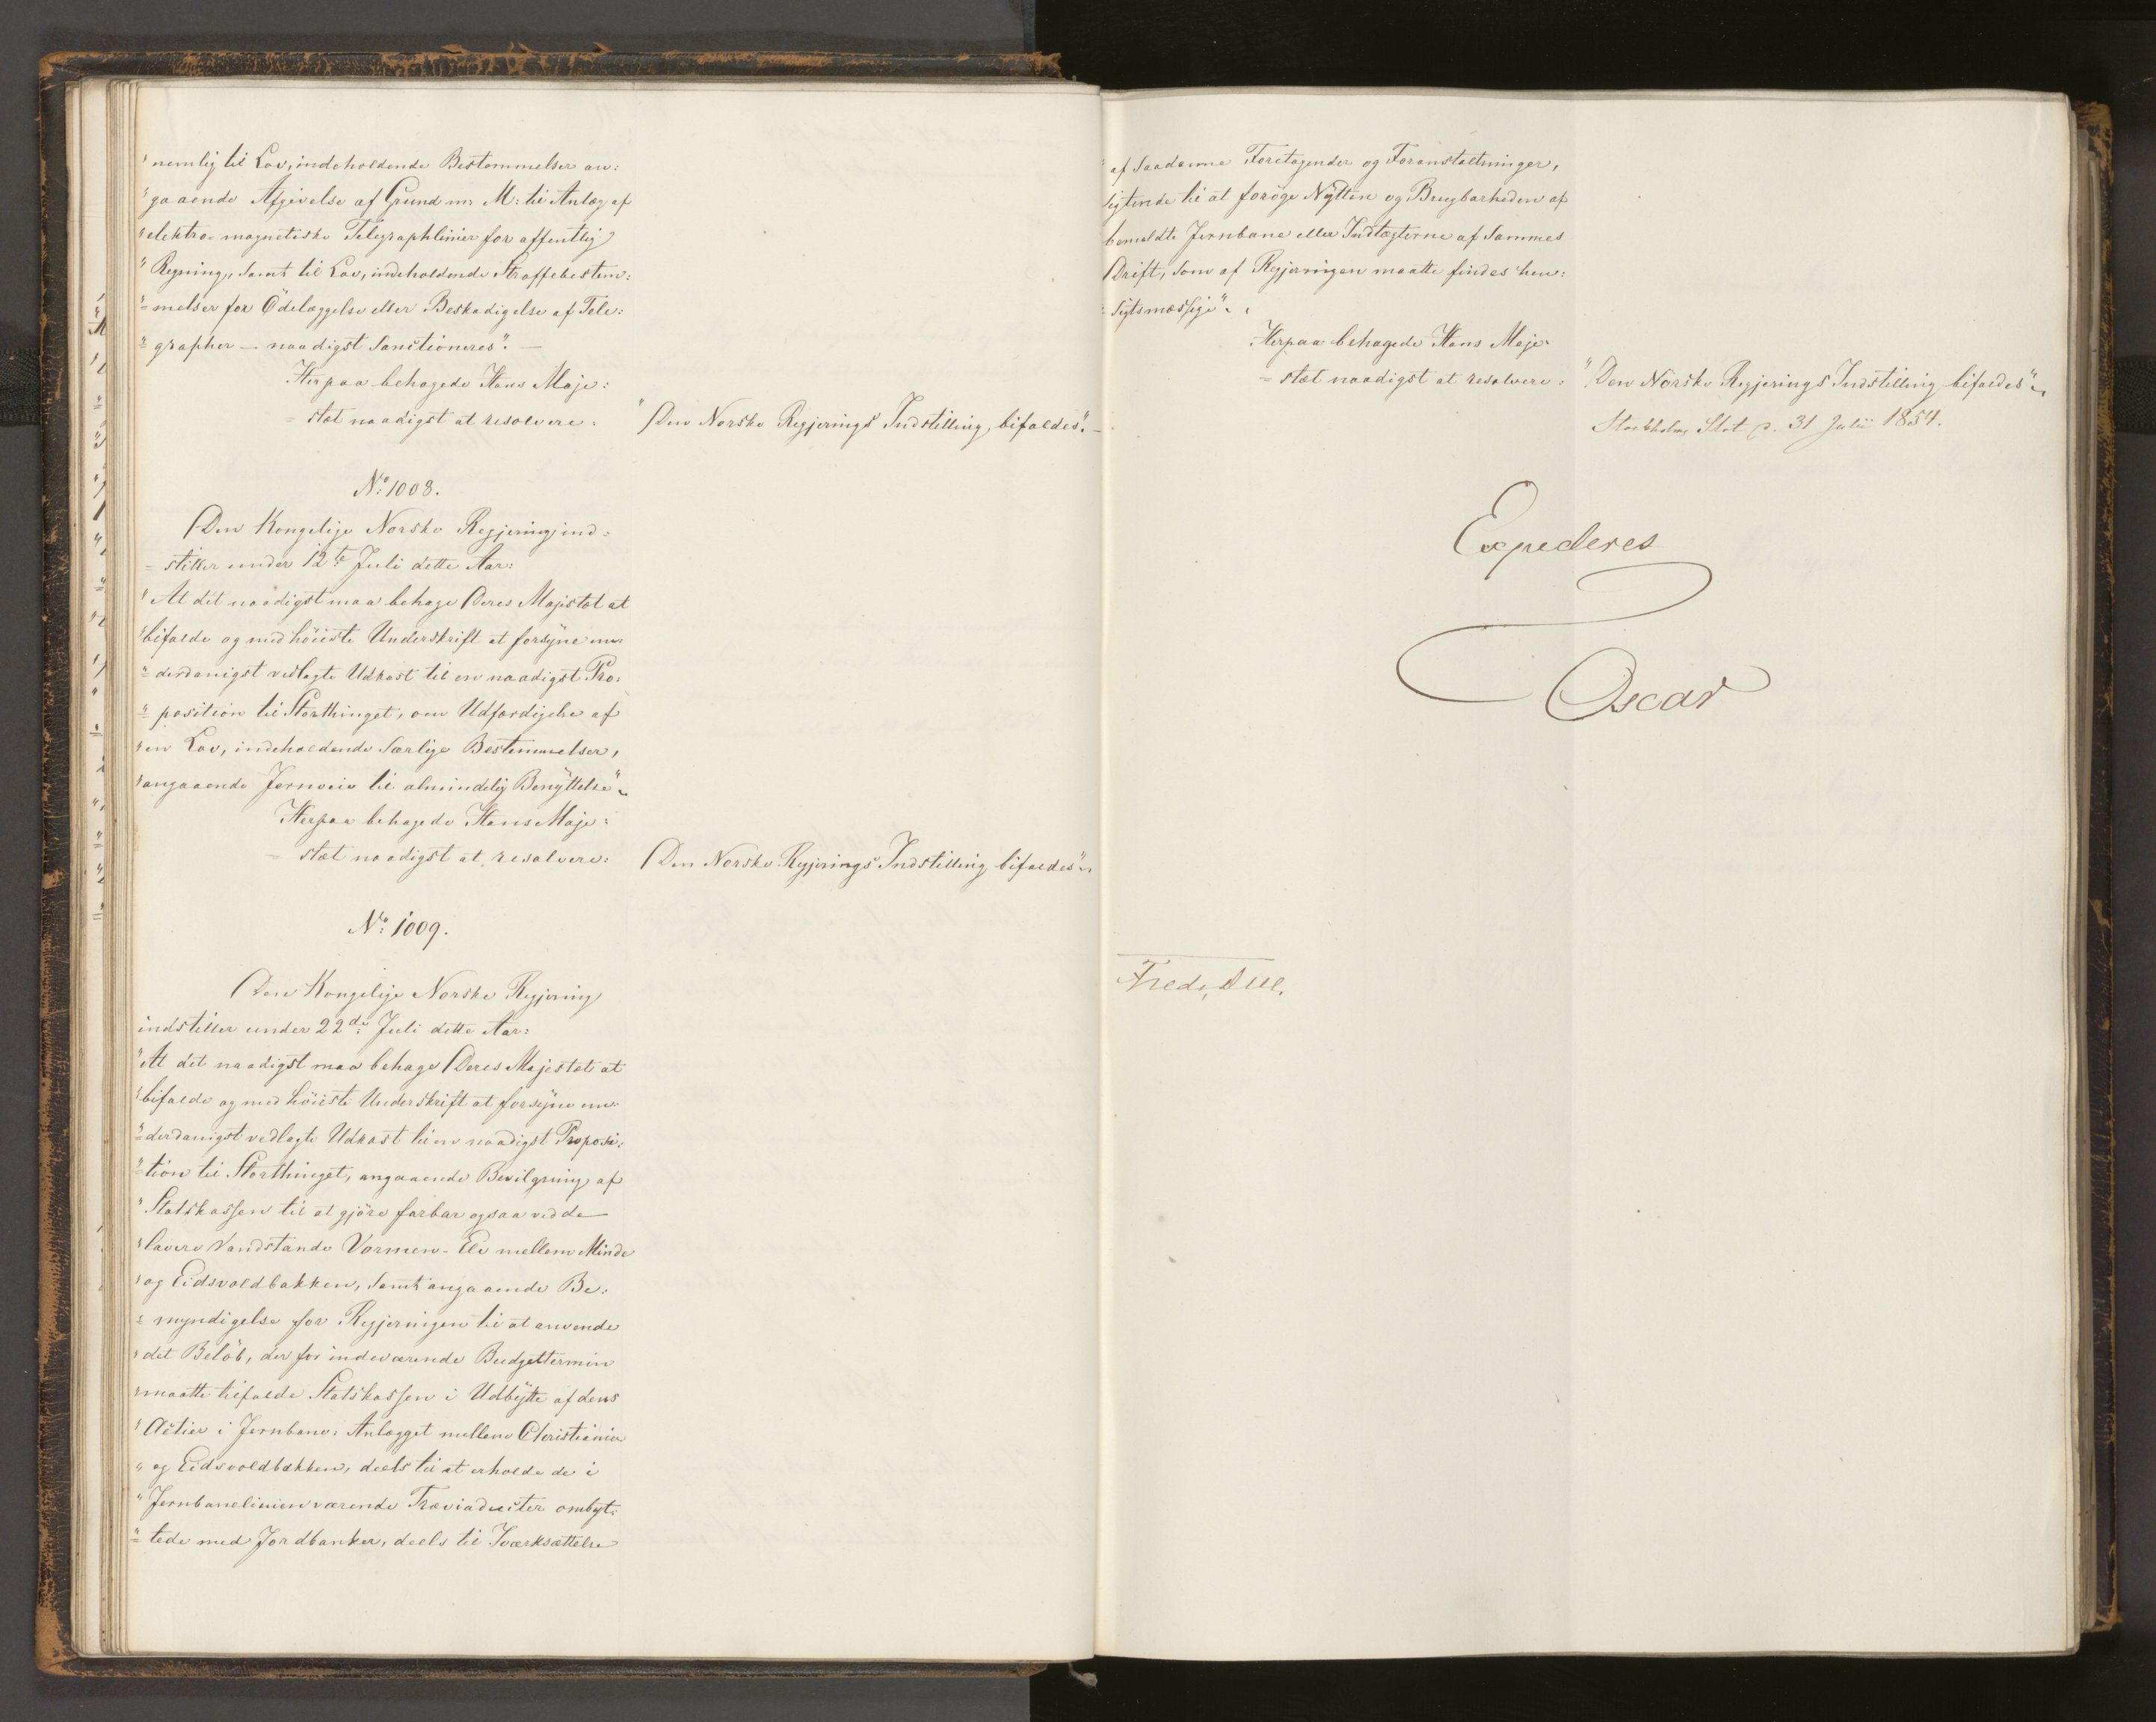 "nemlig til Lov, indeholdende Bestemmelser an:
"gaaende Afgivelse af Grund m: M: til Anlæg af
"elektro-magnetiske Telegraphlinier for offentlig
"Regning, samt til Lov, indeholdende Straffebestem:
"=melser for Ödelæggelse eller Beskadigelse af Tele:
"=grapher — naadigst sanctioneres". —
Herpaa behagede Hans Maje:
=stæt naadigst at resolvere: "Den Norske Regjerings Indstilling bifaldes". —
No: 1008.
Den Kongelige Norske Regjering ind=
=stiller under 12te Juli dette Aar:
"At det naadigst maa behage Deres Majestæt at
"bifalde og med höieste Underskrift at forsyne un:
"=derdanigst vedlagte Udkast til en naadigst Pro:
"=position til Storthinget, om Udfærdigelse af
"en Lov, indeholdende særlige Bestemmelser,
"angaaende Jernveie til almindelig Benyttelse".
Herpaa behagede Hans Maje:
=stæt naadigst at resolvere: Den Norske Regjerings Indstilling bifaldes".
No: 1009.
Den Kongelige Norske Regjering
indstiller under 22de Juli dette Aar:
"At det naadigst maa behage Deres Majestæt at
"bifalde og med höieste Underskrift at forsyne un:
"=derdanigst vedlagte Udkast til en naadigst Proposi:
"=tion til Storthinget, angaaende Bevilgning af
"Statskassen til at gjöre farbar ogsaa ved de
"lavere Vandstande Vormen-Elv mellem Minde
"og Eidsvoldbakken, samt angaaende Be:
"=myndigelse for Regjeringen til at anvende
"det Belöb, der for indeværende Budgettermin
"maatte tilfalde Statskassen i Udbytte af dens
"Actier i Jernbane-Anlægget mellem Christiania
"og Eidsvoldbakken, deels til at erholde de i
"Jernbanelinien værende Træviaducter ombyt:
"=tede med Jordbanker, deels til Iværksættelse
af saadanne Foretagender og Foranstaltninger,
sigtende til at foröge Nytten og Brugbarheden af
bemeldte Jernbane eller Indtægterne af Sammes
Drift, som af Regjeringen maatte findes hen:
=sigtsmæssige".
Herpaa behagede Hans Maje:
=stæt naadigst at resolvere: "Den Norske Regjerings Indstilling bifaldes".
Stockholms Slot d. 31 Julii 1854.
Expederes
Oscar
Fred. Due.